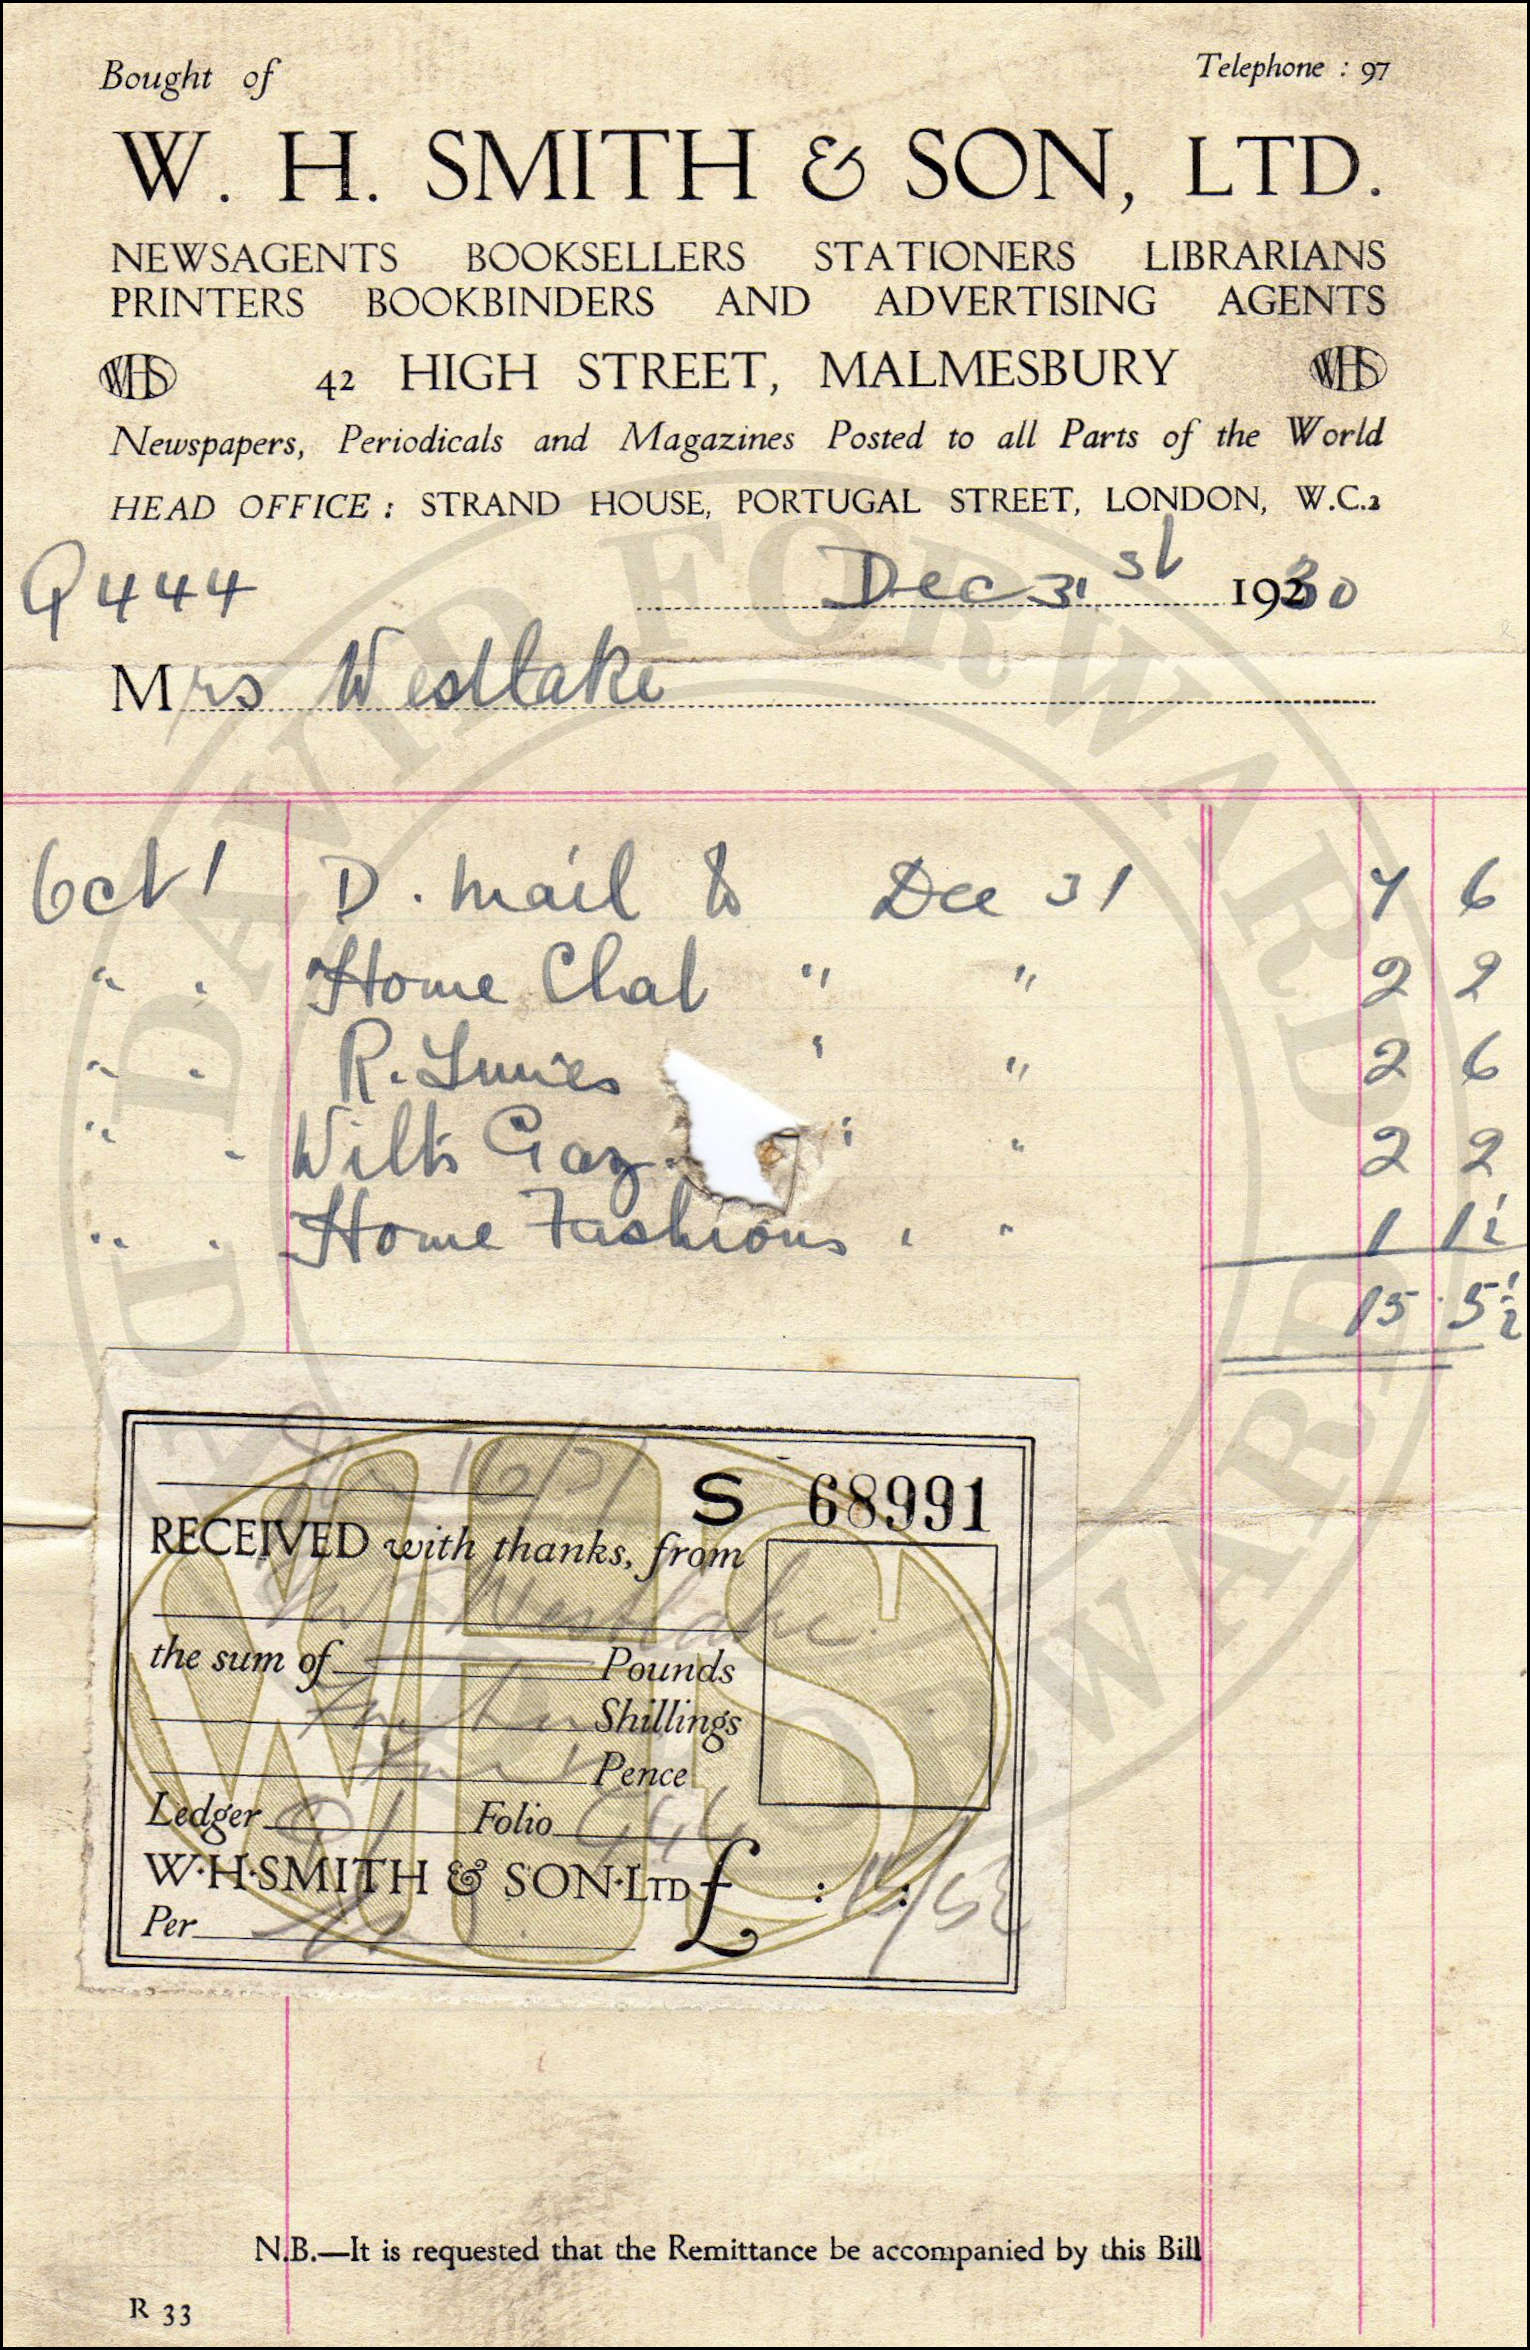 Bought of
Telephone : 97
W. H. SMITH & SON, LTD.
NEWSAGENTS BOOKSELLERS STATIONERS LIBRARIANS
PRINTERS BOOKBINDERS AND ADVERTISING AGENTS
WHS 42 HIGH STREET, MALMESBURY WHS
Newspapers, Periodicals and Magazines Posted to all Parts of the World
HEAD OFFICE : STRAND HOUSE, PORTUGAL STREET, LONDON, W.C.2
Q444 Dec 31st 1930
Mrs Westlake
Oct 1 D. Mail to Dec 31 7 6
" . Home Chat " " 2 2
" . R. Times " " 2 6
" . Wilts Gaz. " " 2 2
" . Home Fashions " " 1 1½
15 . 5½
S 68991
RECEIVED with thanks, from
Westlake
the sum of Pounds
Shillings
Pence
Ledger Folio 444
W·H·SMITH & SON·LTD £ : :
Per
N.B.—It is requested that the Remittance be accompanied by this Bill
R 33
DAVID FORWARD
DAVID FORWARD